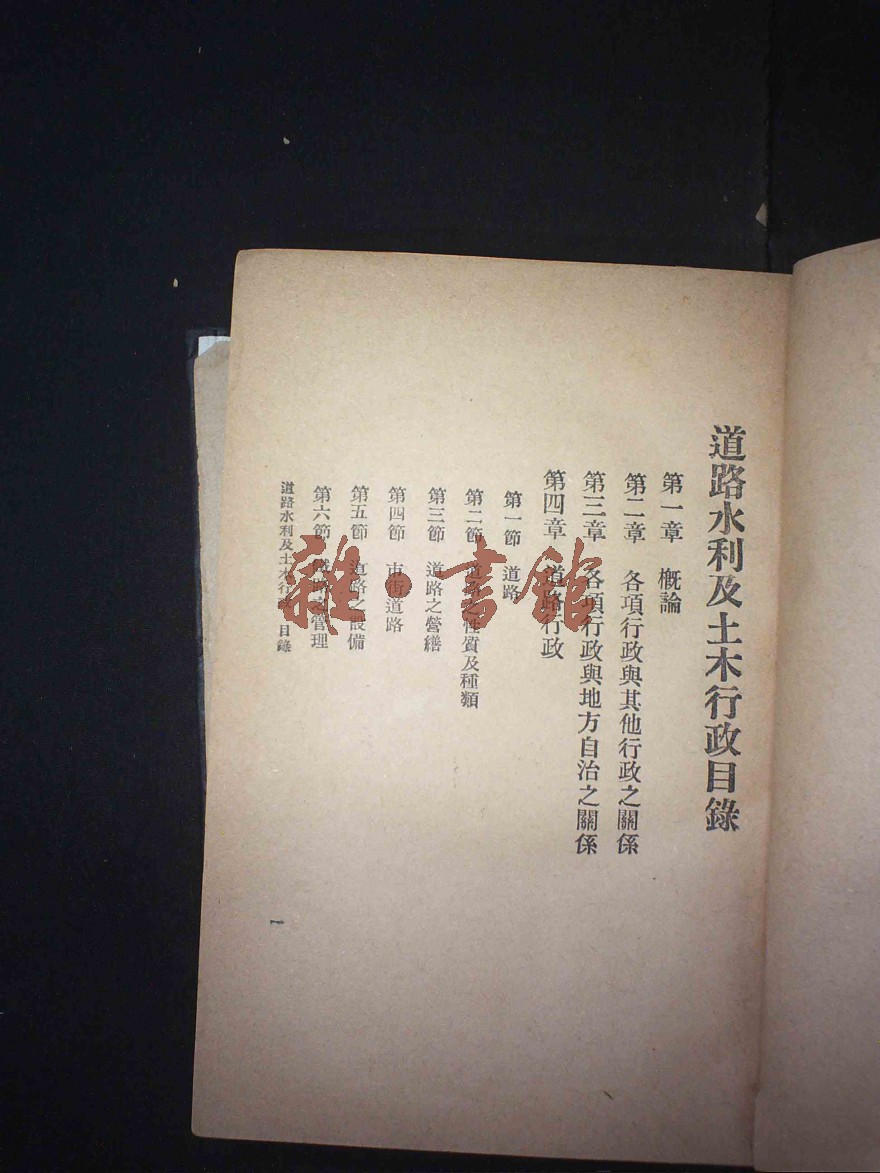 道路水利及土木行政目錄
第一章　概論
第二章　各項行政與其他行政之關係
第三章　各項行政與地方自治之關係
第四章　道路行政
第一節　道路
第二節　道路之性質及種類
第三節　道路之營繕
第四節　市街道路
第五節　道路之設備
第六節　道路之管理
道路水利及土木行政　目錄
一
雜·書館